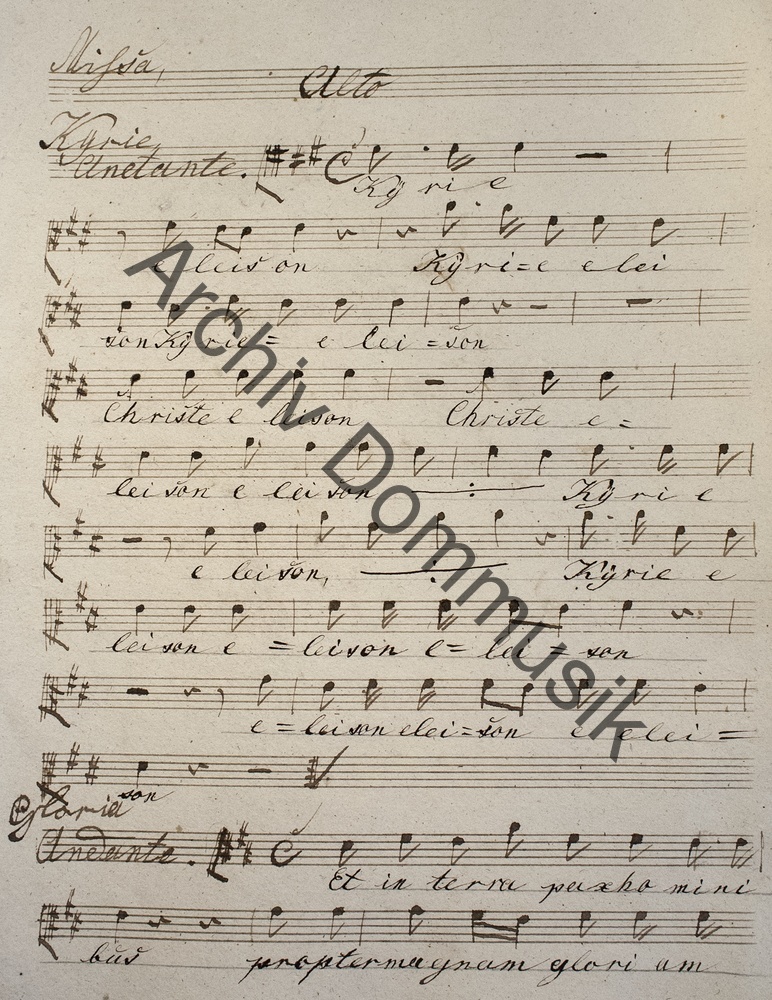 Missa,
Alto
Kyrie
Andante.
Kÿ ri e
e leis on Kÿ ri=e e lei
son Kÿ rie= e lei =son
Christe e leison Christe e =
lei son e lei son Kÿ ri e
e lei son, Kÿrie e
lei son e =leison e= lei = son
e =lei son elei=son e elei =
son
Gloria
Andante.
Et in terra paxho mini
bus proptermagnam glori am
Archiv Dommusik